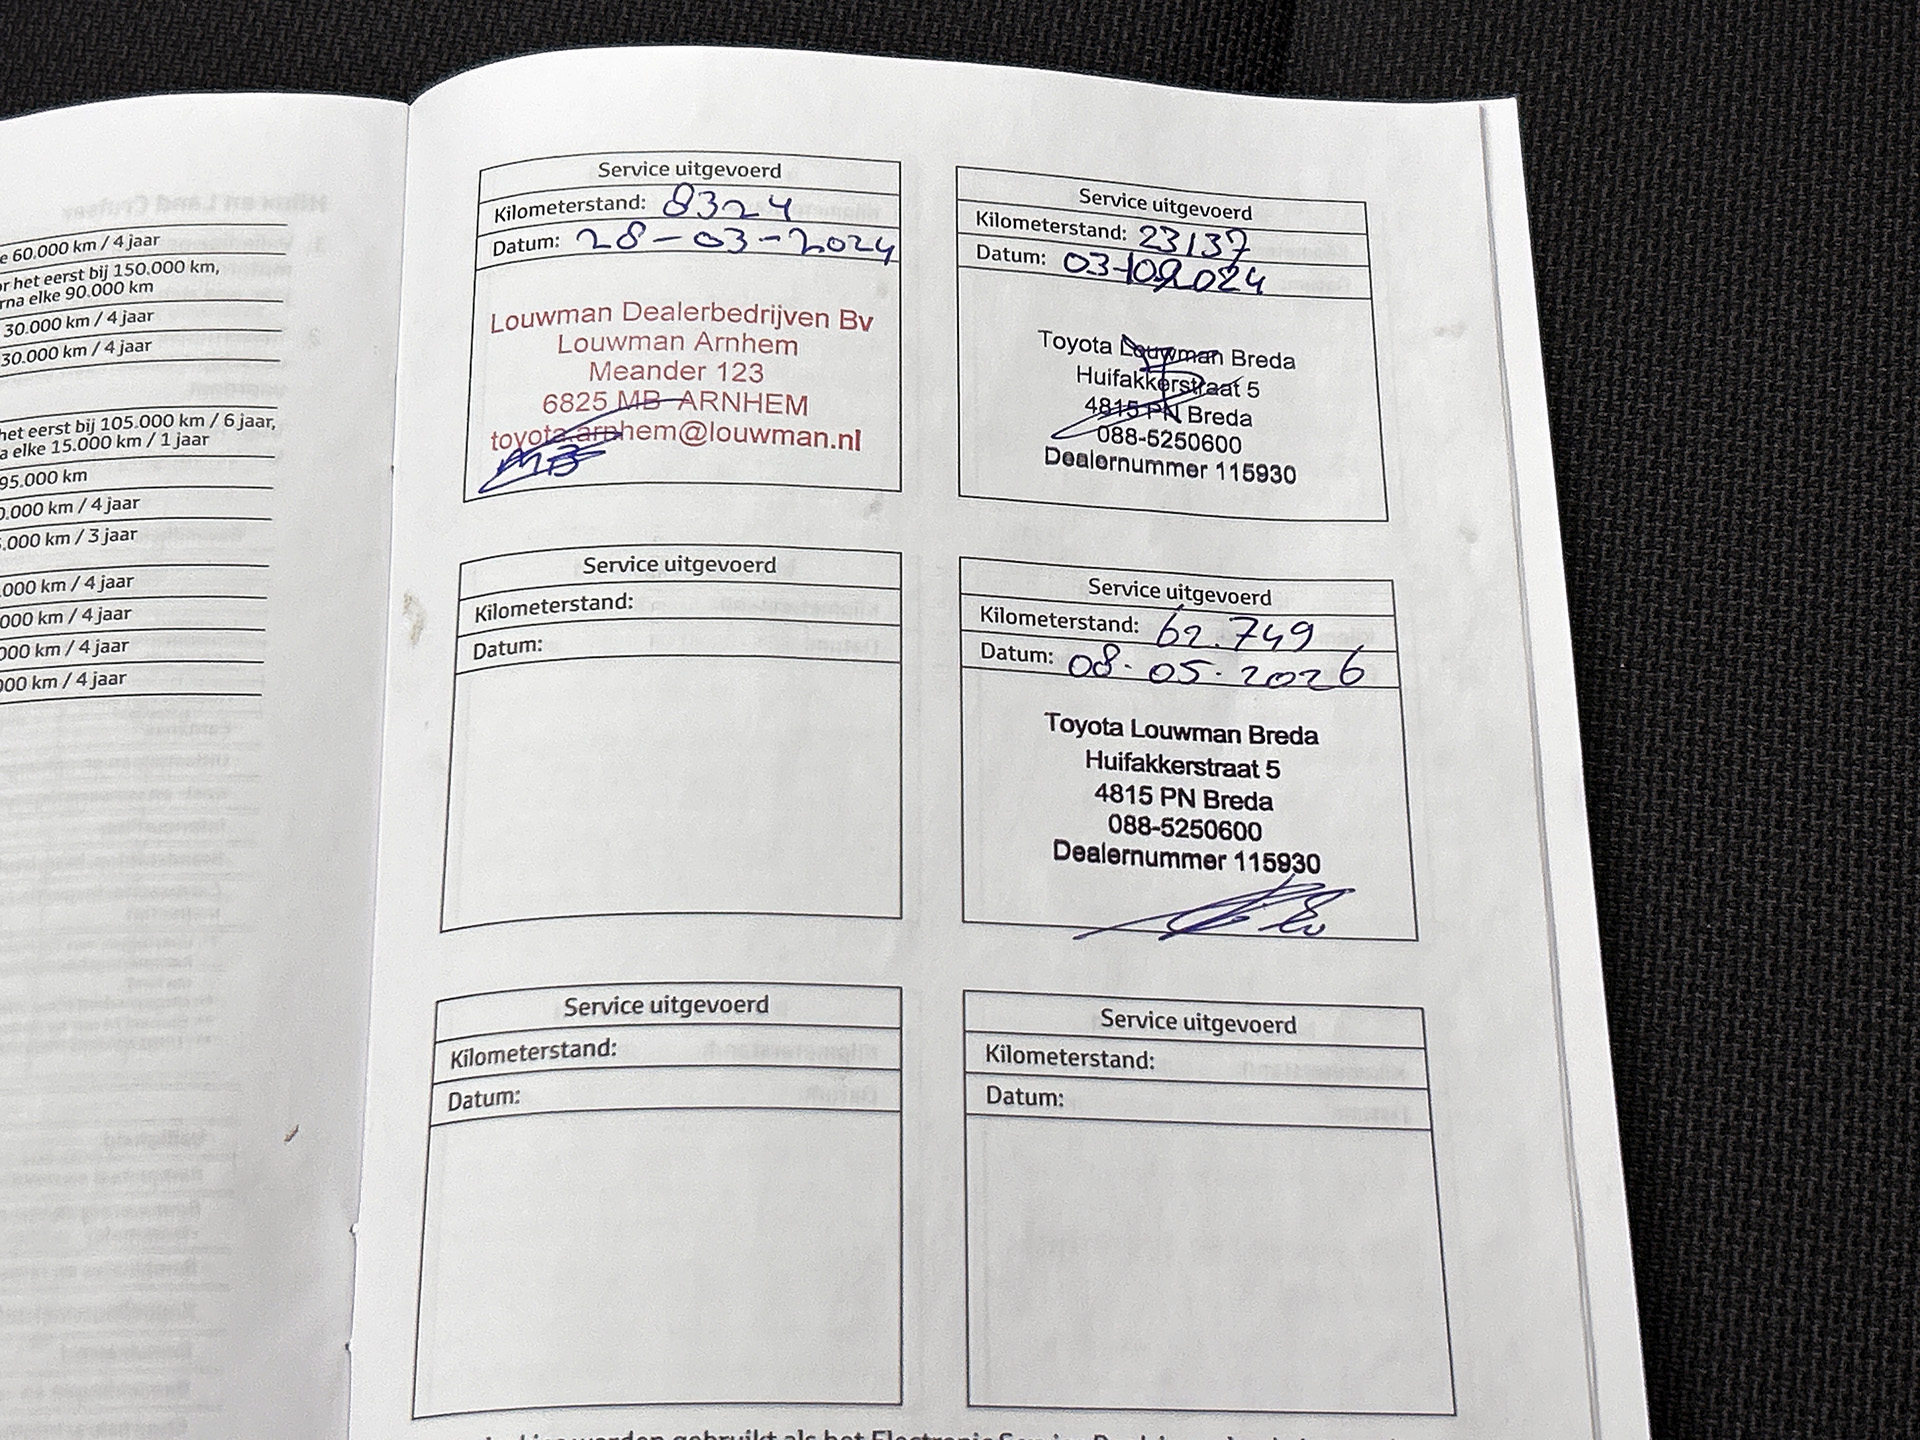 e 60.000 km / 4 jaar
r het eerst bij 150.000 km,
rna elke 90.000 km
30.000 km / 4 jaar
30.000 km / 4 jaar
het eerst bij 105.000 km / 6 jaar,
a elke 15.000 km / 1 jaar
95.000 km
0.000 km / 4 jaar
.000 km / 3 jaar
.000 km / 4 jaar
000 km / 4 jaar
000 km / 4 jaar
000 km / 4 jaar
Service uitgevoerd
Kilometerstand: 8324
Datum: 28-03-2024
Louwman Dealerbedrijven Bv
Louwman Arnhem
Meander 123
6825 MB ARNHEM
toyota.arnhem@louwman.nl
Service uitgevoerd
Kilometerstand: 23137
Datum:
Toyota Louwman Breda
Huifakkerstraat 5
4815 PN Breda
088-5250600
Dealernummer 115930
Service uitgevoerd
Kilometerstand:
Datum:
Service uitgevoerd
Kilometerstand: 62.749
Datum: 08-05-2026
Toyota Louwman Breda
Huifakkerstraat 5
4815 PN Breda
088-5250600
Dealernummer 115930
Service uitgevoerd
Kilometerstand:
Datum:
Service uitgevoerd
Kilometerstand:
Datum: